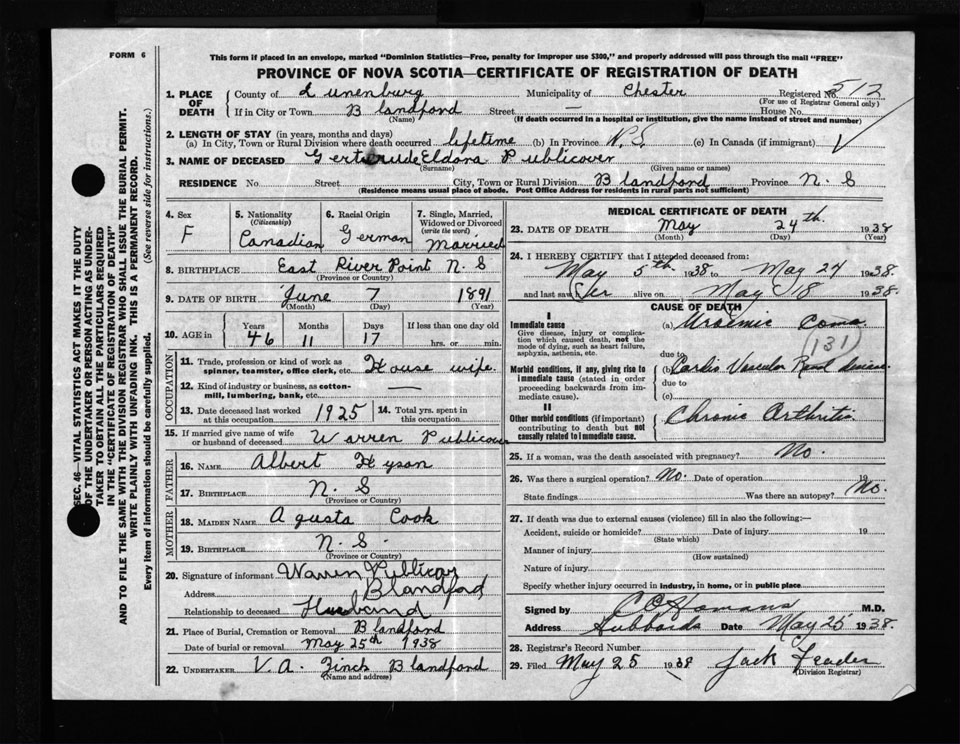 FORM 6
This form if placed in an envelope, marked "Dominion Statistics—Free, penalty for improper use $300," and properly addressed will pass through the mail "FREE"
PROVINCE OF NOVA SCOTIA—CERTIFICATE OF REGISTRATION OF DEATH
SEC. 46—VITAL STATISTICS ACT MAKES IT THE DUTY
OF THE UNDERTAKER OR PERSON ACTING AS UNDER-
TAKER TO OBTAIN ALL THE PARTICULARS REQUIRED
IN THE "CERTIFICATE OF REGISTRATION OF DEATH"
AND TO FILE THE SAME WITH THE DIVISION REGISTRAR WHO SHALL ISSUE THE BURIAL PERMIT.
WRITE PLAINLY WITH UNFADING INK. THIS IS A PERMANENT RECORD.
Every item of information should be carefully supplied. (See reverse side for instructions.)
1. PLACE OF DEATH County of Lunenburg Municipality of Chester Registered No. 512
(For use of Registrar General only)
If in City or Town Blandford Street — House No.
(Name) (If death occurred in a hospital or institution, give the name instead of street and number)
2. LENGTH OF STAY (in years, months and days)
(a) In City, Town or Rural Division where death occurred lifetime (b) In Province N.S. (c) In Canada (if immigrant)
3. NAME OF DECEASED Gertrude Eldora Publicover
(Surname) (Given name or names)
RESIDENCE No Street City, Town or Rural Division Blandford Province N S
(Residence means usual place of abode. Post Office Address for residents in rural parts not sufficient)
4. Sex F
5. Nationality (Citizenship) Canadian
6. Racial Origin German
7. Single, Married, Widowed or Divorced (write the word) Married
8. BIRTHPLACE East River Point N S
(Province or Country)
9. DATE OF BIRTH June 7 1891
(Month) (Day) (Year)
10. AGE in Years 46 Months 11 Days 17 If less than one day old hrs. or min.
OCCUPATION
11. Trade, profession or kind of work as spinner, teamster, office clerk, etc. House wife
12. Kind of industry or business, as cotton-mill, lumbering, bank, etc. —
13. Date deceased last worked at this occupation 1925 14. Total yrs. spent in this occupation
15. If married give name of wife or husband of deceased Warren Publicover
FATHER
16. NAME Albert Hyson
17. BIRTHPLACE N. S
(Province or Country)
MOTHER
18. MAIDEN NAME Agusta Cook
19. BIRTHPLACE N. S.
(Province or Country)
20. Signature of informant Warren Publicover
Address Blandford
Relationship to deceased Husband
21. Place of Burial, Cremation or Removal Blandford
Date of burial or removal May 25th 1938
22. UNDERTAKER V. A. Zinck Blandford
(Name and address)
MEDICAL CERTIFICATE OF DEATH
23. DATE OF DEATH May 24th 1938
(Month) (Day) (Year)
24. I HEREBY CERTIFY that I attended deceased from:
May 5th 1938 to May 24 1938.
and last saw her alive on May 18 1938.
CAUSE OF DEATH
I
Immediate cause
Give disease, injury or complication which caused death, not the mode of dying, such as heart failure, asphyxia, asthenia, etc.
(a) Uraemic Coma
(131)
due to
Morbid conditions, if any, giving rise to immediate cause (stated in order proceeding backwards from immediate cause).
(b) Cardio Vascular Renal disease
due to
(c)
II
Other morbid conditions (if important) contributing to death but not causally related to immediate cause.
Chronic Arthritis
25. If a woman, was the death associated with pregnancy? No.
26. Was there a surgical operation? No. Date of operation 19
State findings Was there an autopsy? No.
27. If death was due to external causes (violence) fill in also the following:—
Accident, suicide or homicide? Date of injury 19
(State which)
Manner of injury
(How sustained)
Nature of injury
Specify whether injury occurred in industry, in home, or in public place
Signed by C O Homans M.D.
Address Hubbards Date May 25 1938.
28. Registrar's Record Number
29. Filed May 25 1938 Jack
(Division Registrar)